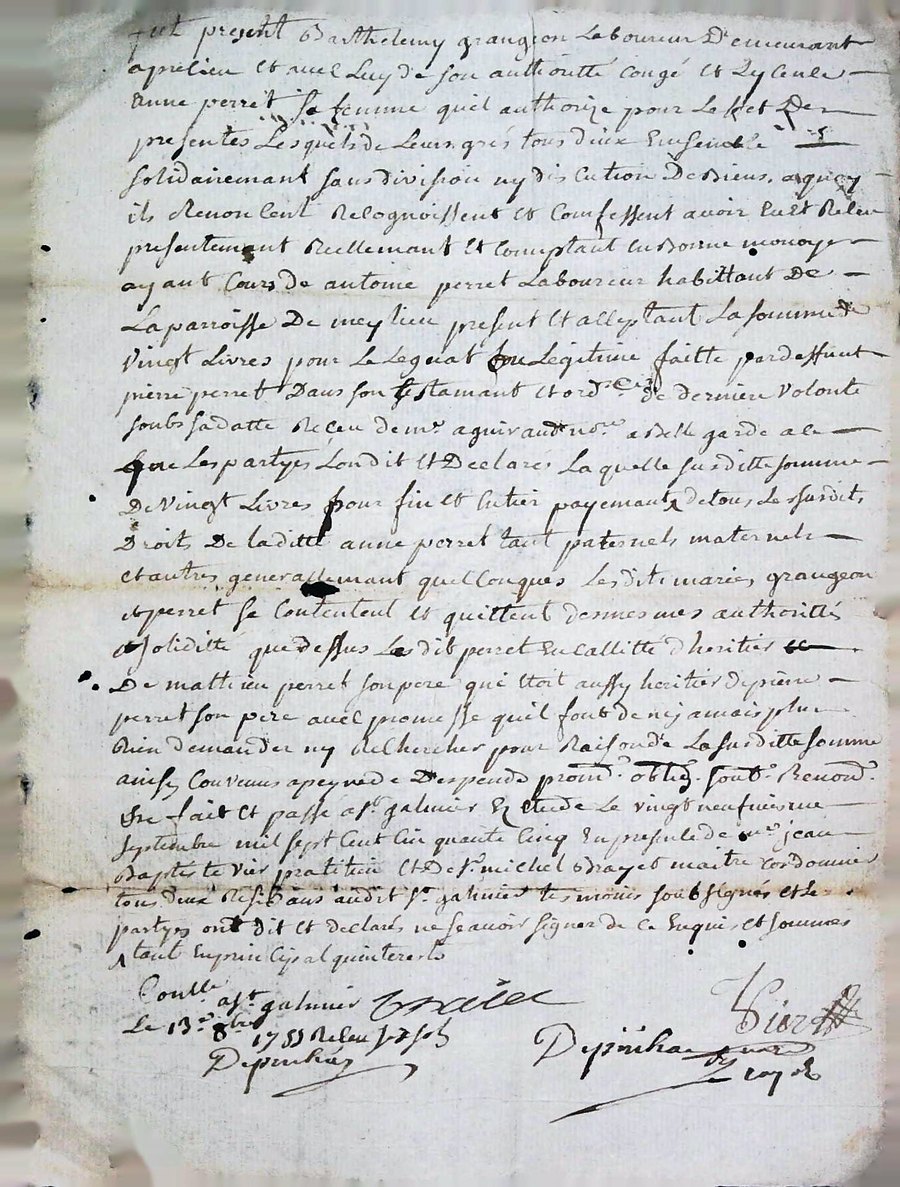 fut present Barthelemy grangeon Laboureur Demeurant
audelieu et avec Luy de son authoritté congé et Lycence
anne perret sa femme quil authorize pour Leffet Des
presentes Lesquels de Leurs grés tous deux Ensemble
solidairemant sans division ny discution De Biens, aquoy
ils Renoncent Recognoissent et Comfessent avoir Eu et Receu
presentement Reellemant et Comptant en Bonne monoye
ayant Cours de antoine perret Laboureur habittant De
La parroisse De meylieu present et acceptant La somme de
vingt Livres pour Le Leguat ou Legitime faitte par deffunt
pierre perret Dans son testamant et ord.ce de derniere volonté
soubs sa datte Receu de me aguiraud nore a Bellegarde a ce
que Les partyes Lon dit et Declarés La quelle susditte somme
De vingt Livres pour fin et Entier payemant ^ de tous Les susdits
Droits De laditte anne perret tant paternels maternels
et autres generallemant quelConques Lesdits mariés grangeon
et perret se Contentent et quittent desmesmes authorittés
et soliditté que dessus Ledit perret en Callitté dheritier
De mathieu perret son pere qui Etoit aussy heritier de pierre
perret son pere avec promesse quil font de ni jamais plus
Rien demander ny Rechercher pour Raison de La susditte somme
ainsy Convenus apeyne de Despends promd. oblig. soub. Renond.
fre fait et passé a st galmier Etude Le vingt neufvieme
septembre mil sept Cent Cinquante Cinq En presence de mre jean
Baptiste vier pratitien et De sr. michel Brayet maitre Cordonnier
tous deux Resid ans audit st galmier temoins soubsignés et Les
partyes ont dit et declarés ne scavoir signer de Ce Enquis et sommés
^ tant En principal quinterests
Conllé a st. galmier
Le 13e 8bre
1755 Receu
Depinhac
Vier
Depinhac